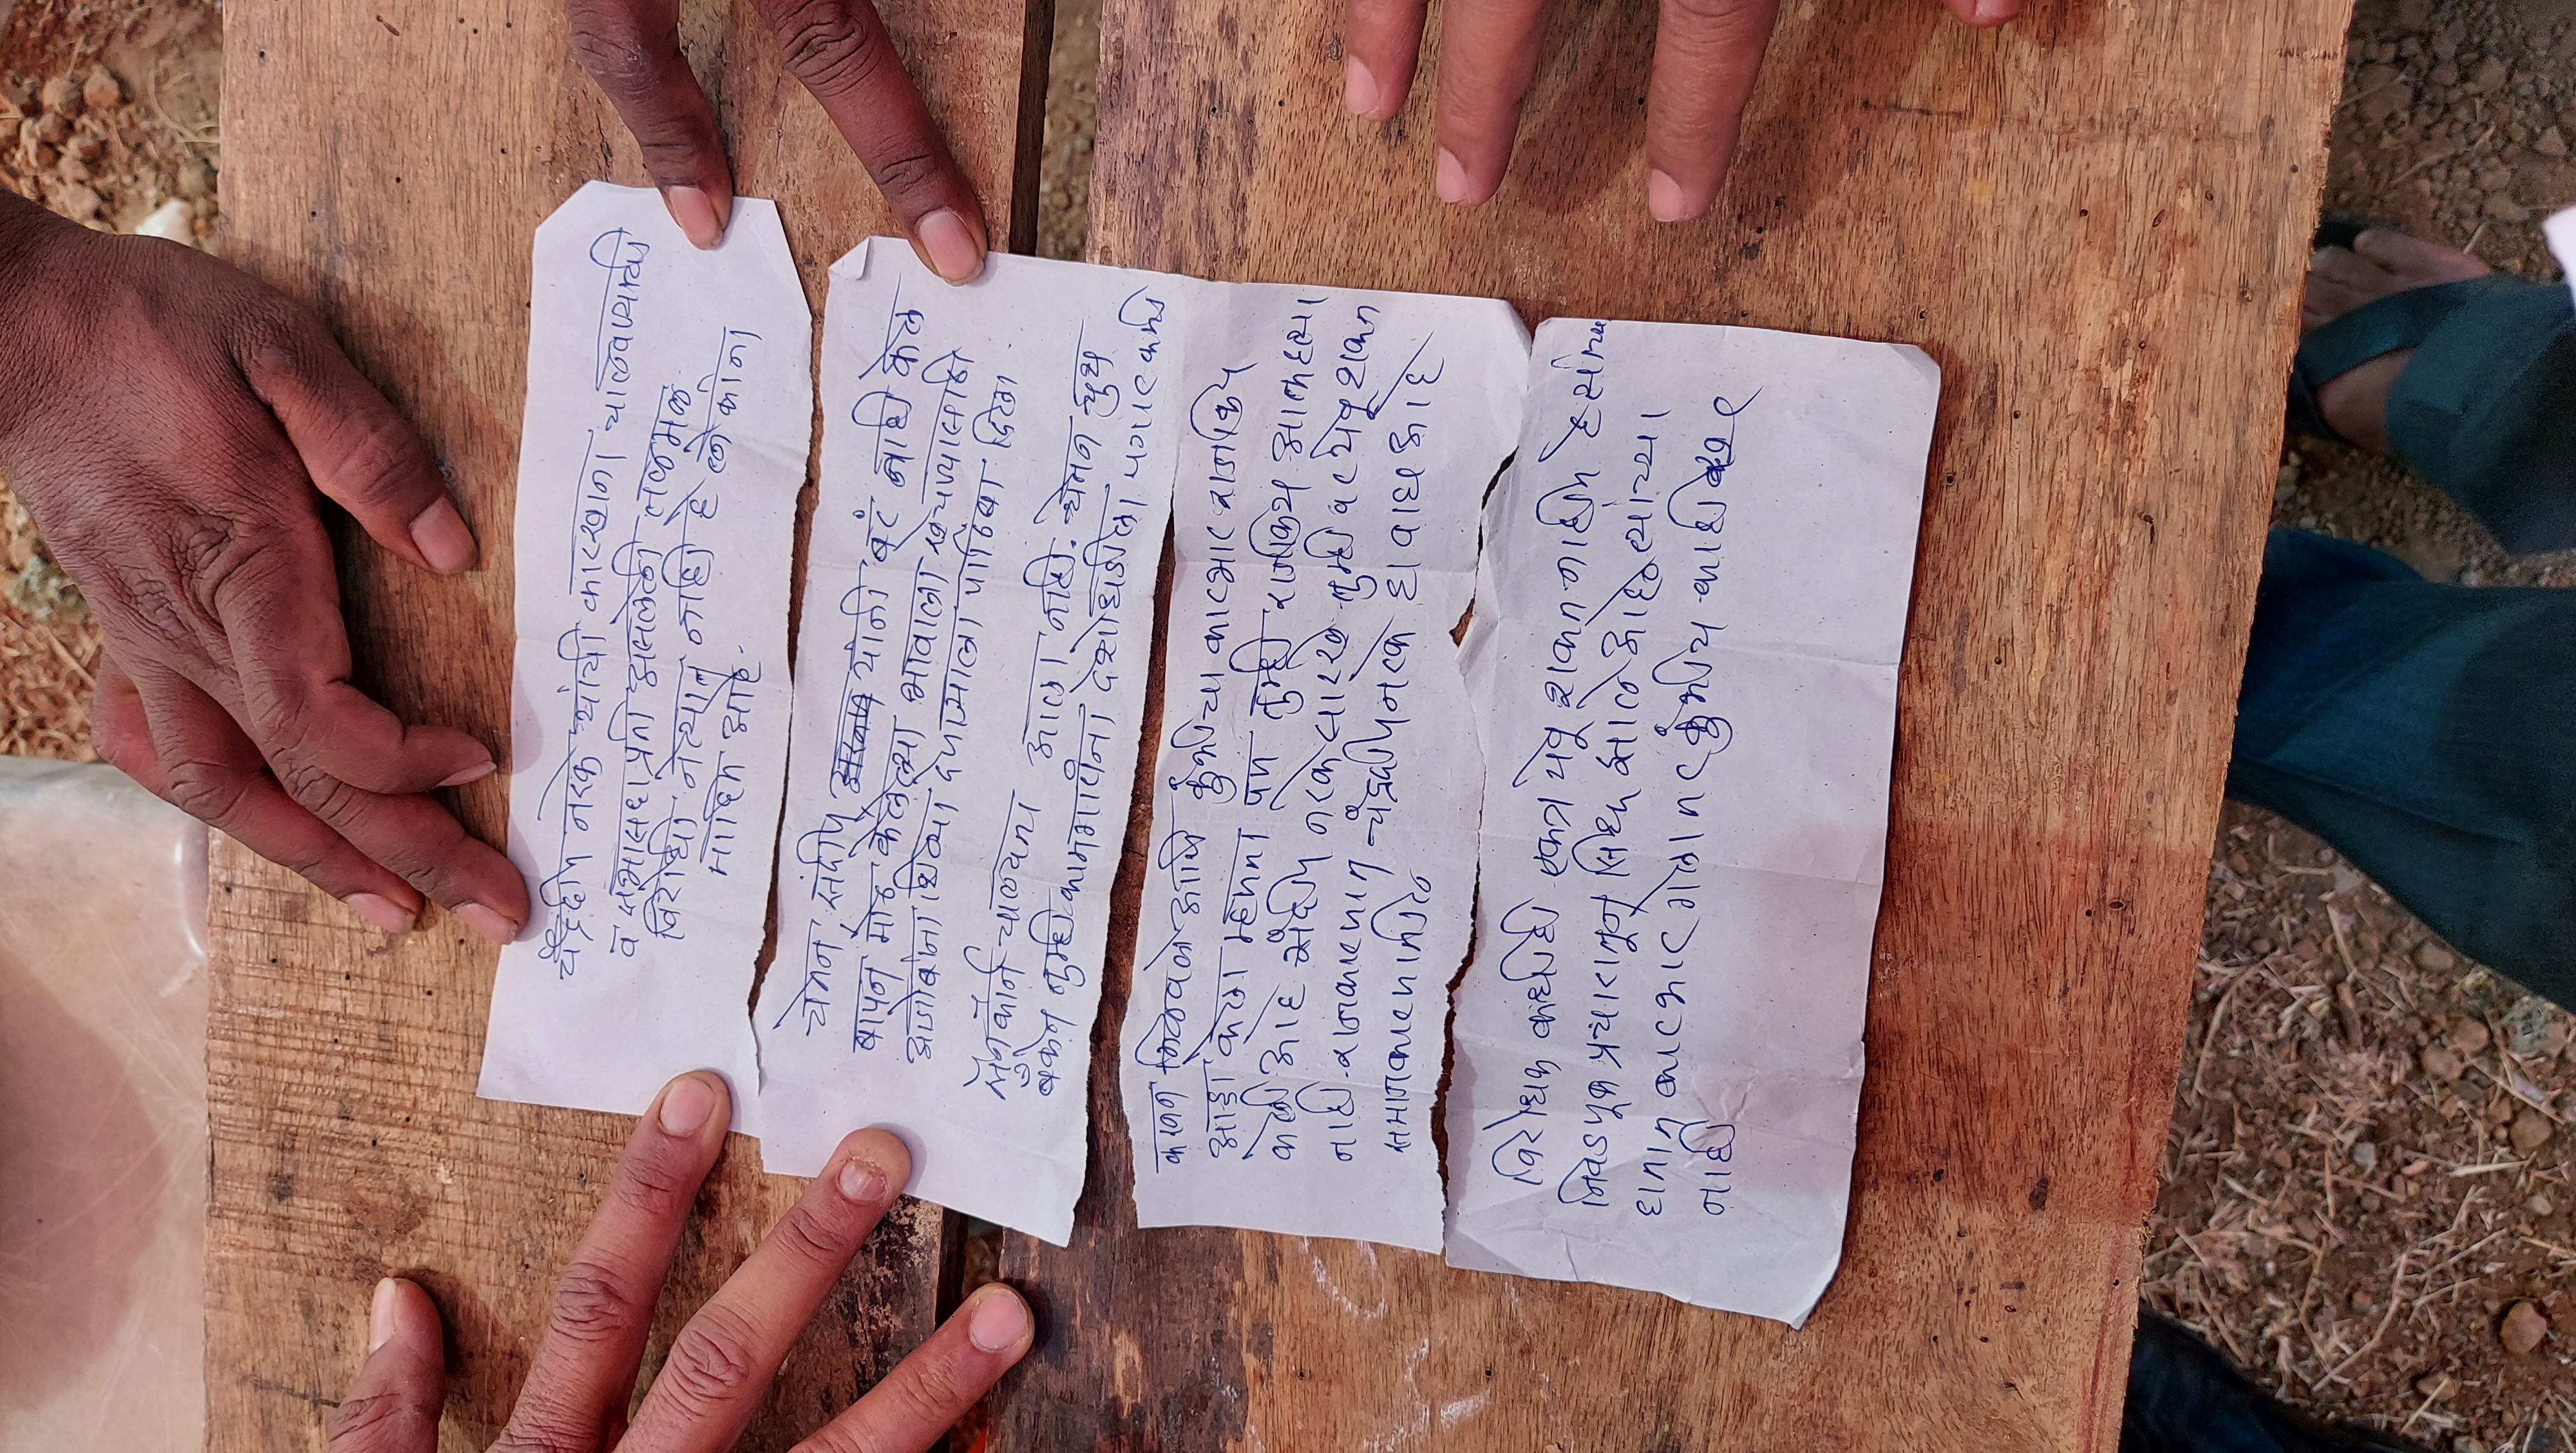 चंद्रदीप नरके यांची कारखाना चालवण्याची
व सभासदा प्रती असलेली तळमळ
विरोधी नेत्यात नाही हे लोकांना
माहित आहे.
चेतन, संदीप यांनी बरं नाही केल
बापन मोठ केलेल्या भावाला खेचण्यासाठी
आजोबांना शिव्या देणाऱ्याला पाठिंबा दिला
चालवता आला नाही. चेतन युथ
बँकेन तुम्ही कामगारांना देशोधडीला पगार कमी
करून मिळवले आणि कुंभीचा कारभार राजकिय
आड्डा केला म्हणता पण तुम्ही राजकिय आत्महत्या
केली आहे संदीप नरके सारखे तुम्ही वर येवू शकत
नाही. राजकारणात चंद्रदीप नरके हा वाघ आहे
विरोधक कधीही एकत्र येवू शकत नाहीत हे
निवडणूक प्रचारातून सिध्द झाले आहे त्यांच्या
हातात कारभार गेला तर कुंभीच काही खर
नाही